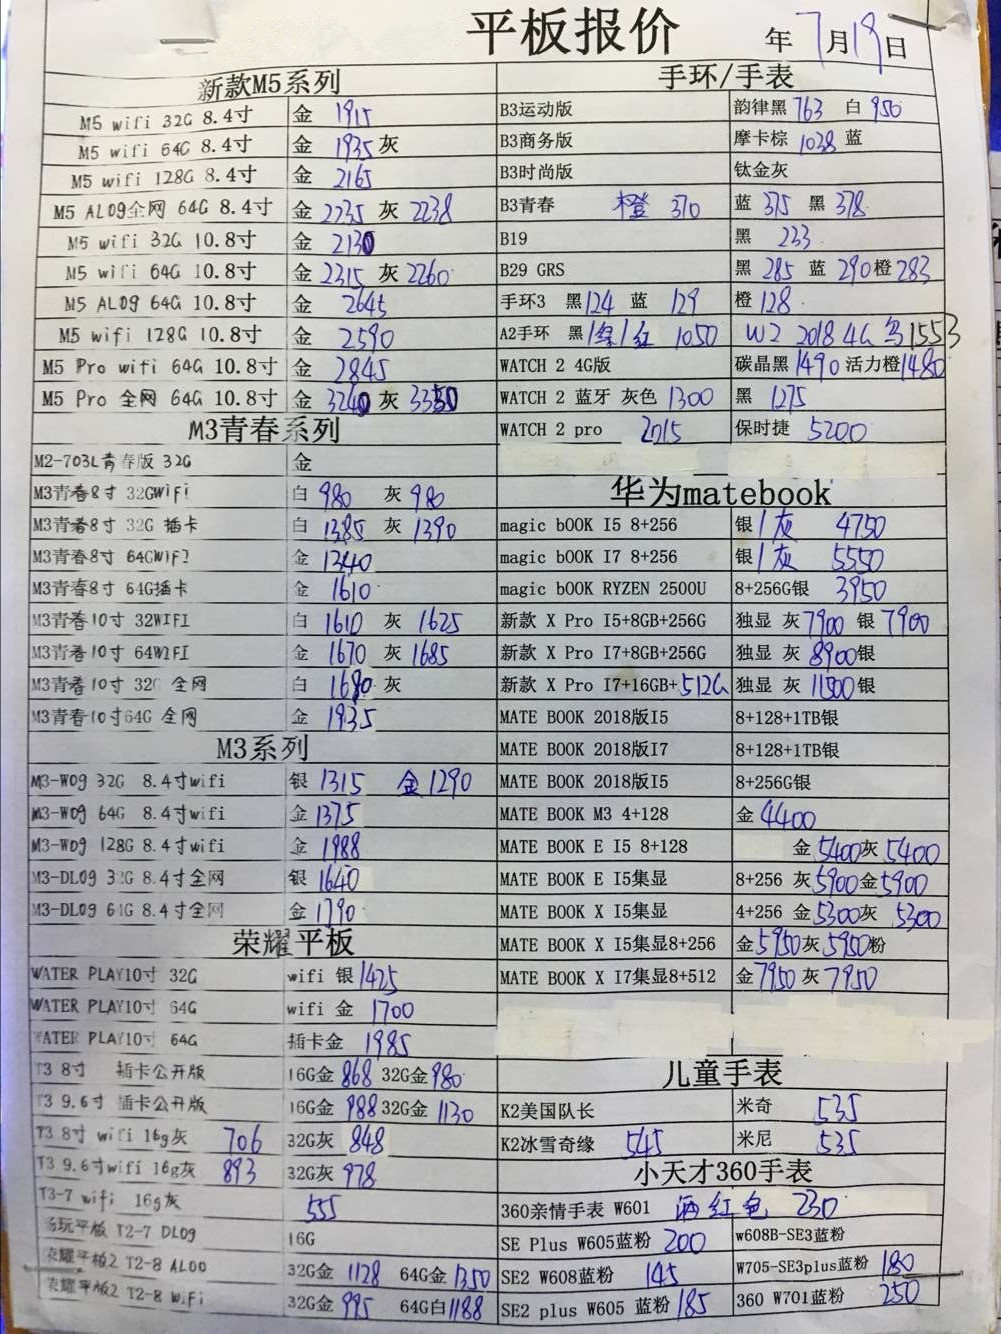 平板报价 年 7月19日
新款M5系列
M5 wifi 32G 8.4寸 金 1915
M5 wifi 64G 8.4寸 金 1935 灰
M5 wifi 128G 8.4寸 金 2165
M5 AL09全网 64G 8.4寸 金 2235 灰 2238
M5 wifi 32G 10.8寸 金 2130
M5 wifi 64G 10.8寸 金 2315 灰 2260
M5 AL09 64G 10.8寸 金 2645
M5 wifi 128G 10.8寸 金 2590
M5 Pro wifi 64G 10.8寸 金 2845
M5 Pro 全网 64G 10.8寸 金 3240 灰 3350
M3青春系列
M2-703L青春版 32G 金
M3青春8寸 32GWiFi 白 980 灰 980
M3青春8寸 32G 插卡 白 1385 灰 1390
M3青春8寸 64GWIFI 金 1340
M3青春8寸 64G插卡 金 1610
M3青春10寸 32WIFI 白 1610 灰 1625
M3青春10寸 64WIFI 金 1670 灰 1685
M3青春10寸 32G 全网 白 1680 灰
M3青春10寸64G 全网 金 1935
M3系列
M3-W09 32G 8.4寸wifi 银 1315 金 1290
M3-W09 64G 8.4寸wifi 金 1375
M3-W09 128G 8.4寸wifi 金 1988
M3-DL09 32G 8.4寸全网 银 1640
M3-DL09 64G 8.4寸全网 金 1790
荣耀平板
WATER PLAY10寸 32G wifi 银 1425
WATER PLAY10寸 64G wifi 金 1700
WATER PLAY10寸 64G 插卡金 1985
T3 8寸 插卡公开版 16G金 868 32G金 980
T3 9.6寸 插卡公开版 16G金 988 32G金 1130
T3 8寸 wifi 16g灰 706 32G灰 848
T3 9.6寸wifi 16g灰 893 32G灰 978
T3-7 wifi 16g灰 555
畅玩平板 T2-7 DL09 16G
荣耀平板2 T2-8 AL00 32G金 1128 64G金 1350
荣耀平板2 T2-8 WiFi 32G金 995 64G白 1188
手环/手表
B3运动版 韵律黑 763 白 950
B3商务版 摩卡棕 1028 蓝
B3时尚版 钛金灰
B3青春 橙 370 蓝 375 黑 378
B19 黑 233
B29 GRS 黑 285 蓝 290 橙 283
手环3 黑 124 蓝 129 橙 128
A2手环 黑/绿/红 1050 W2 2018 4G 1553
WATCH 2 4G版 碳晶黑 1490 活力橙 1480
WATCH 2 蓝牙 灰色 1300 黑 1275
WATCH 2 pro 2015 保时捷 5200
华为matebook
magic bOOK I5 8+256 银/灰 4750
magic bOOK I7 8+256 银/灰 5550
magic bOOK RYZEN 2500U 8+256G银 3950
新款 X Pro I5+8GB+256G 独显 灰 7900 银 7900
新款 X Pro I7+8GB+256G 独显 灰 8900 银
新款 X Pro I7+16GB+512G 独显 灰 11500 银
MATE BOOK 2018版I5 8+128+1TB银
MATE BOOK 2018版I7 8+128+1TB银
MATE BOOK 2018版I5 8+256G银
MATE BOOK M3 4+128 金 4400
MATE BOOK E I5 8+128 金 5400 灰 5400
MATE BOOK E I5集显 8+256 灰 5900 金 5900
MATE BOOK X I5集显 4+256 金 5300 灰 5300
MATE BOOK X I5集显8+256 金 5950 灰 5950 粉
MATE BOOK X I7集显8+512 金 7950 灰 7950
儿童手表
K2美国队长 米奇 535
K2冰雪奇缘 545 米尼 535
小天才360手表
360亲情手表 W601 酒红色 230
SE Plus W605蓝粉 200 w608B-SE3蓝粉
SE2 W608蓝粉 145 W705-SE3plus蓝粉 180
SE2 plus W605 蓝粉 185 360 W701蓝粉 250